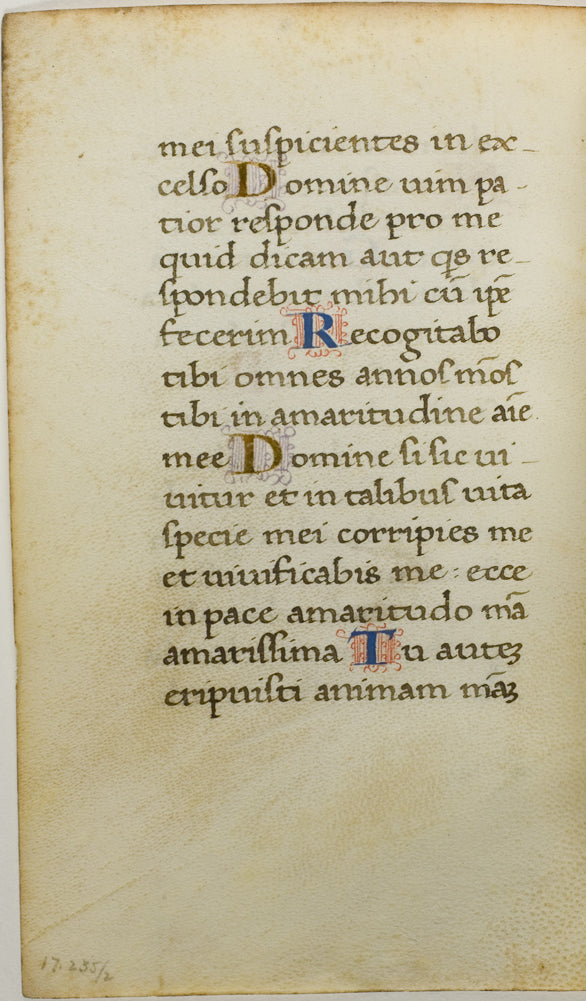 mei suspicientes in ex-
celso Domine uim pa-
tior responde pro me
quid dicam aut q̄s re-
spondebit mihi cū ip̄e
fecerim Recogitabo
tibi omnes annos m̄os
tibi in amaritudine aīe
mee Domine si sic ui-
uitur et in talibus uita
specie mei corripies me
et uiuificabis me : ecce
in pace amaritudo m̄a
amarissima Tu autez
eripuisti animam m̄az
17.235/2